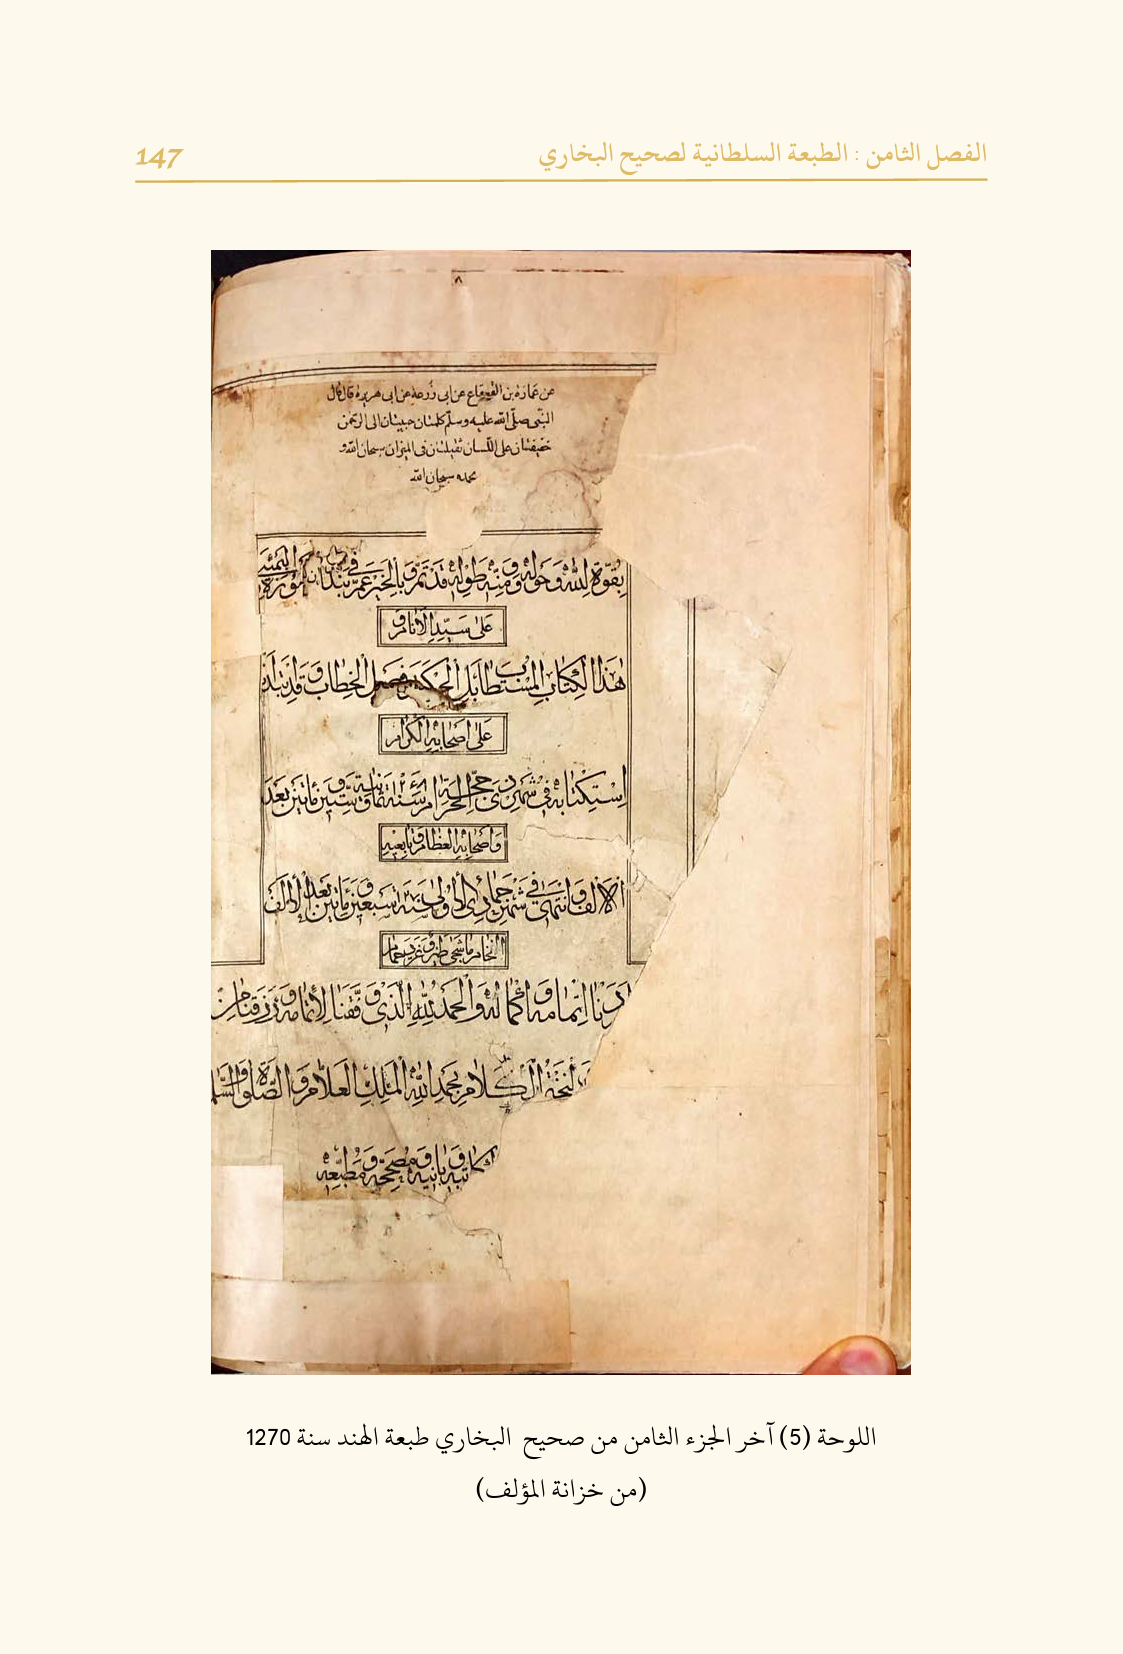 الفصل الثامن : الطبعة السلطانية لصحيح البخاري
147
٨
عن عمارة بن القعقاع عن ابى زُرعة عن ابى هريرة قال قال
النّبى صلّى الله عليه وسلّم كلمتان حبيبتان الى الرحمٰن
خفيفتان على اللّسان ثقيلتان فى الميزان سبحان الله و
بحمده سبحان الله
بقوّة الله وحوله ومنّه وطوله قد تمّ وبالخير عمّ فى بندر
على سيّد الانام و
هٰذا الكتاب المستطاب بل الحكمة وفصل الخطاب وقد بدأ
على اصحابه الكرام
استكتابه فى شهر ذى حجّة الحرام سنة ثمانية وستّين ومأتين بعد
واصحابه العظام وتابعيه
الالف وانتهى فى شهر جمادى الاولى سنة سبعين ومأتين بعد الالف
اتمامه واكماله والحمد لله الّذى وفّقنا لاتمامه ورزقنا من
الكلام بحمد الله الملك العلّام والصّلوة والسّلام
كاتبه وبانيه ومصحّحه ومطبعه
اللوحة (5) آخر الجزء الثامن من صحيح البخاري طبعة الهند سنة 1270
(من خزانة المؤلف)